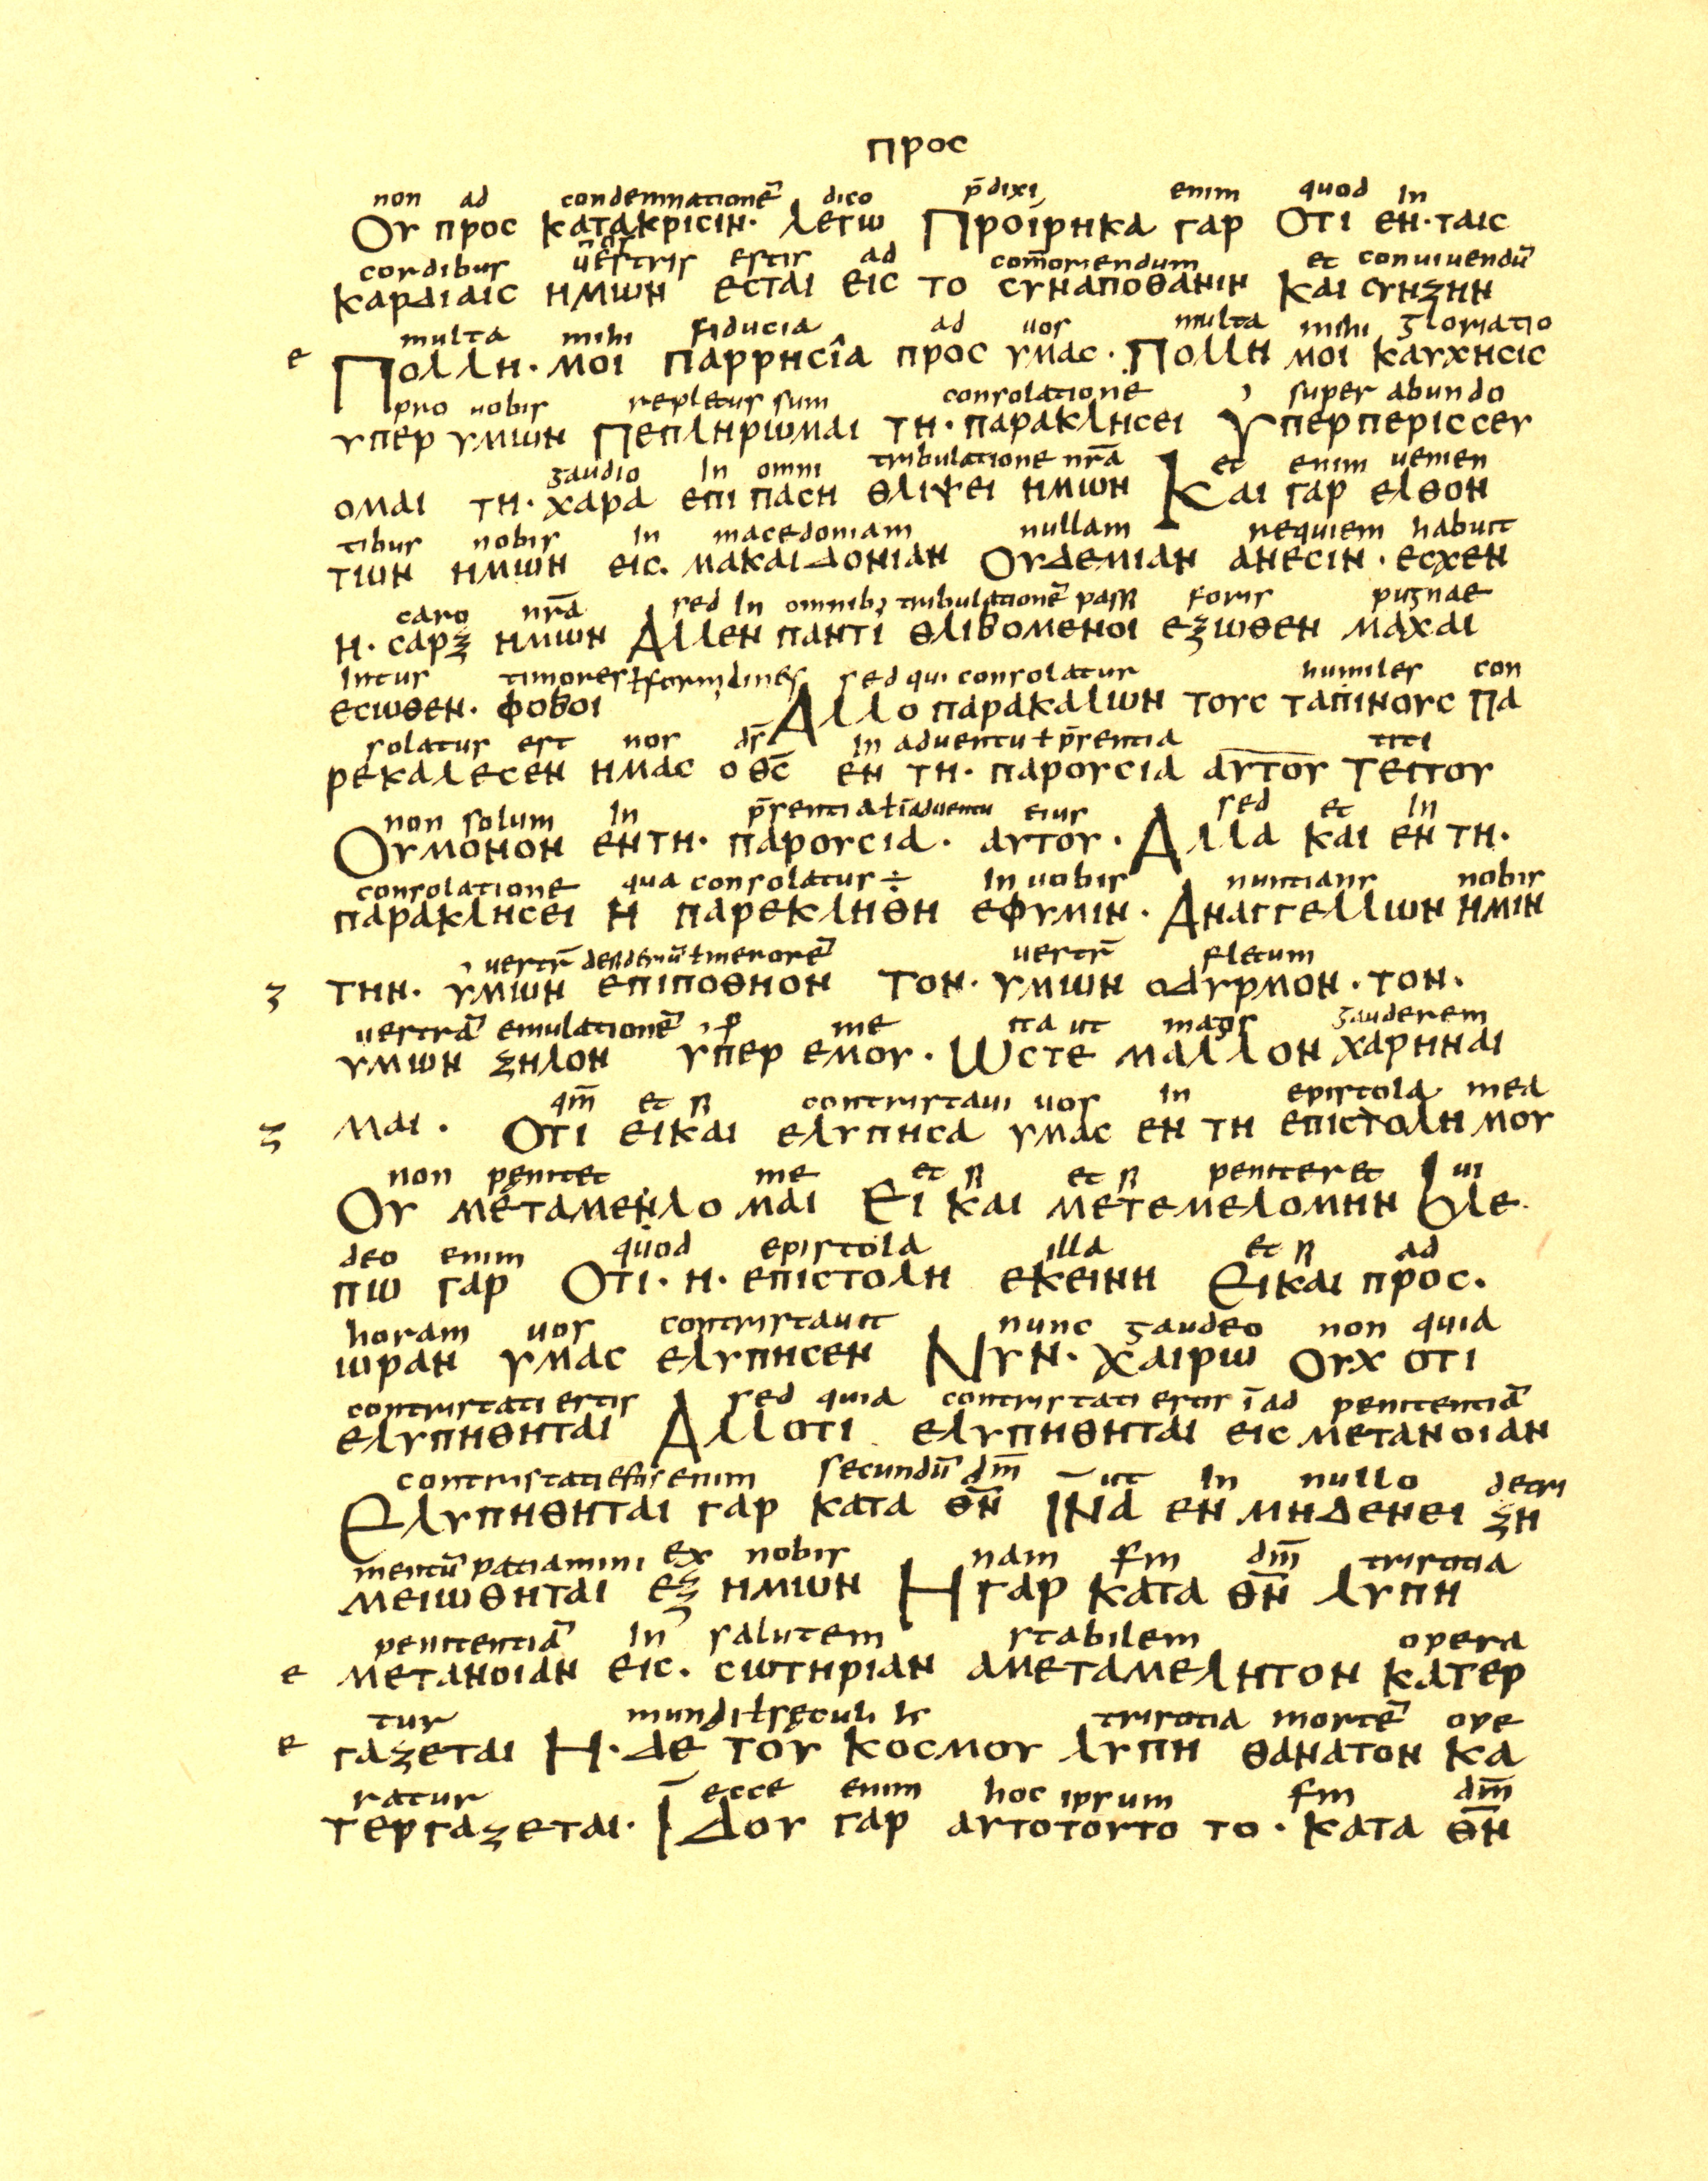 προς
non ad condemnationē dico p̄dixi enim quod In
Ου προς κατακρισιν· λεγω Προϊρηκα γαρ Οτι εν·ταις
cordibus uestris estis ad com̄oriendum et conuiuendū
καρδιαις ημων εσται εις το συναποθανιν Και συνζην
multa mihi fiducia ad uos multa mihi gloriatio
ε Πολλη· μοι παρρησîα προς υμας· Πολλη μοι καυχησις
pro uobis repletus sum consolatione super abundo
υπερ υμων Πεπληρωμαι τη· παρακλησει Υπερπερισσευ
gaudio In omni tribulatione nr̄a et enim uenien
ομαι τη· χαρα επι παση θλιψει ημων Και γαρ ελθον
tibus nobis In macedoniam nullam requiem habuit
τιων ημων εις· μακαιδονιαν Ουδεμιαν ανεσιν· εσχεν
caro nr̄a sed In omnib; tribulationē passi foris pugnae
η· σαρξ ημων Αλλεν παντι θλιβομενοι εξωθεν μαχαι
Intus timores ł formidines sed qui consolatur humiles con
εσωθεν· φοβοι Αλλο παρακαλων τους ταπινους Πα
solatus est nos ds̄ In aduentu ł p̄sentia titi
ρεκαλεσεν ημας ο θ̅ς̅ εν τη· παρουσια α̅υ̅τ̅ο̅υ̅ Τειτου
non solum In p̄sentia ł ī aduentu eius sed et In
Ουμονον εντη· παρουσια· αυτου· Αλλα και εν τη·
consolatione qua consolatus ÷ In uobis nuntians nobis
παρακλησει Η παρεκληθη εφυμιν· Αναγγελλων ημιν
uestr̄ desideriū ł merorē uestr̄ fletum
ζ την· υμων επιποθηον τον· υμων οδυρμον· τον·
uestrā emulationē p̱ me ita ut magis gauderem
υμων ζηλον υπερ εμου· Ωστε μαλλον χαρηναι
qm̄ et si contristaui uos In epistola mea
ζ μαι· Οτι ει και ελυπησα υμας εν τη επιστολη μου
non penitet me et si et si peniteret Ui
Ου μεταμενλο μαι Ει και μετεμελομην Βλε
deo enim quod epistola illa et si ad
πω γαρ Οτι· η· επιστολη εκεινη Ει και προς·
horam uos contristauit nunc gaudeo non quia
ωραν υμας ελυπησεν Νυν· χαιρω ουχ οτι
contristati estis sed quia contristati estis ī ad penitentiā
ελυπηθηται Αλλοτι ελυπηθηται εις μετανοιαν
contristati estis enim secundū dm̄ ut In nullo detri
Ελυπηθηται γαρ κατα θ̅ν̅ Ινα εν μηδενει ζη
mentū patiamini ex nobis nam sm̄ dm̄ tristitia
μειωθηται εξ ημων Η γαρ κατα θ̅ν̅ λυπη
penitentiā In salutem stabilem opera
ε μετανοιαν εις· σωτηριαν αμεταμελητον κατερ
tur mundi ł sęculi tristitia mortē ope
ε γαζεται Η·δε του κοσμου λυπη θανατον κα
ratur ecce enim hoc ipsum sm̄ dm̄
τεργαζεται· Ιδου γαρ αυτοτουτο το· κατα θ̅ν̅